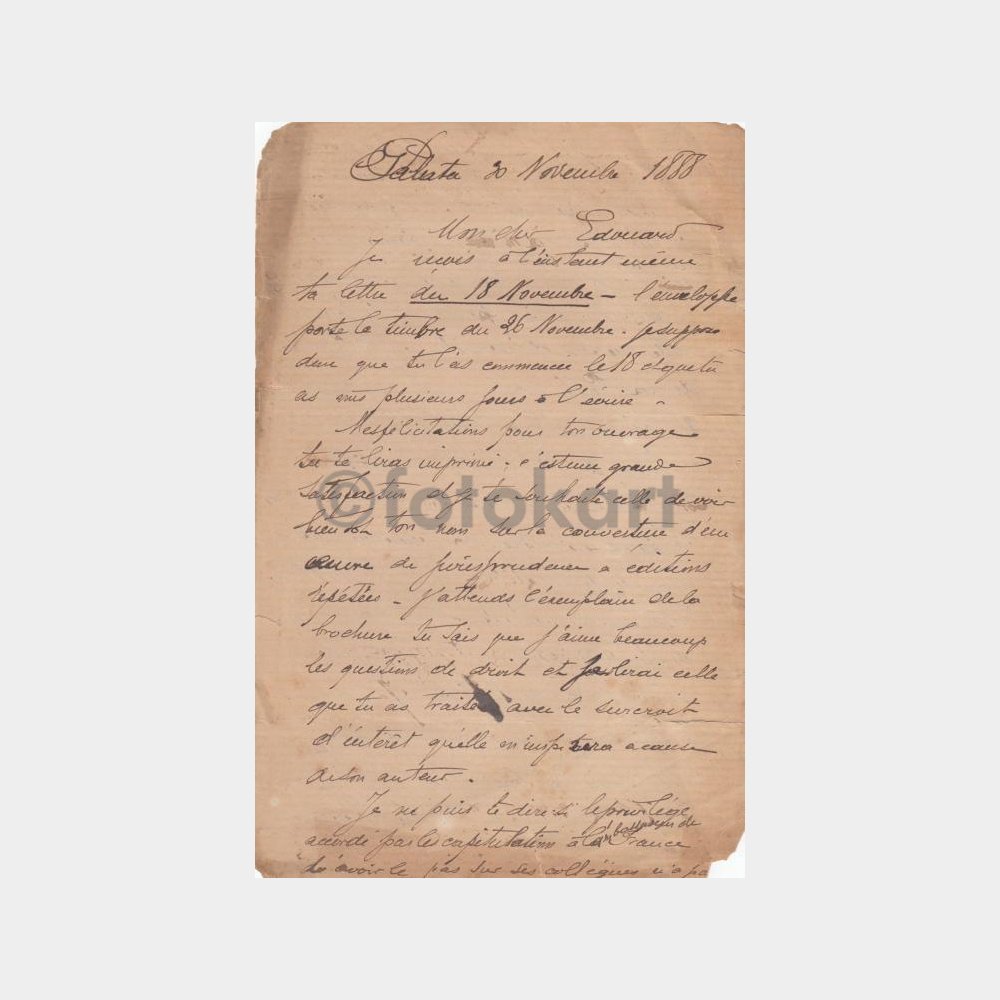 Galata 30 Novembre 1888
Mon cher Edouard
Je reçois à l'instant même
ta lettre du 18 Novembre - l'enveloppe
porte le timbre du 26 Novembre. je suppose
donc que tu l'as commencée le 18 et que tu
as mis plusieurs jours à l'écrire -
Mes félicitations pour ton ouvrage
tu te liras imprimé. c'est une grande
satisfaction et je te souhaite celle de voir
bientôt ton nom sur la couverture d'une
œuvre de jurisprudence a éditions
répétées - J'attends l'exemplaire de la
brochure tu sais que j'aime beaucoup
les questions de droit et je lirai celle
que tu as traitée avec le surcroit
d'intérêt qu'elle m'inspirera a cause
de son auteur.
Je ne puis te dire si le privilége
accordé par les capitulations à l'ambassadeur de
la France
d'avoir le pas sur ses collègues n'a pa
©fotokart